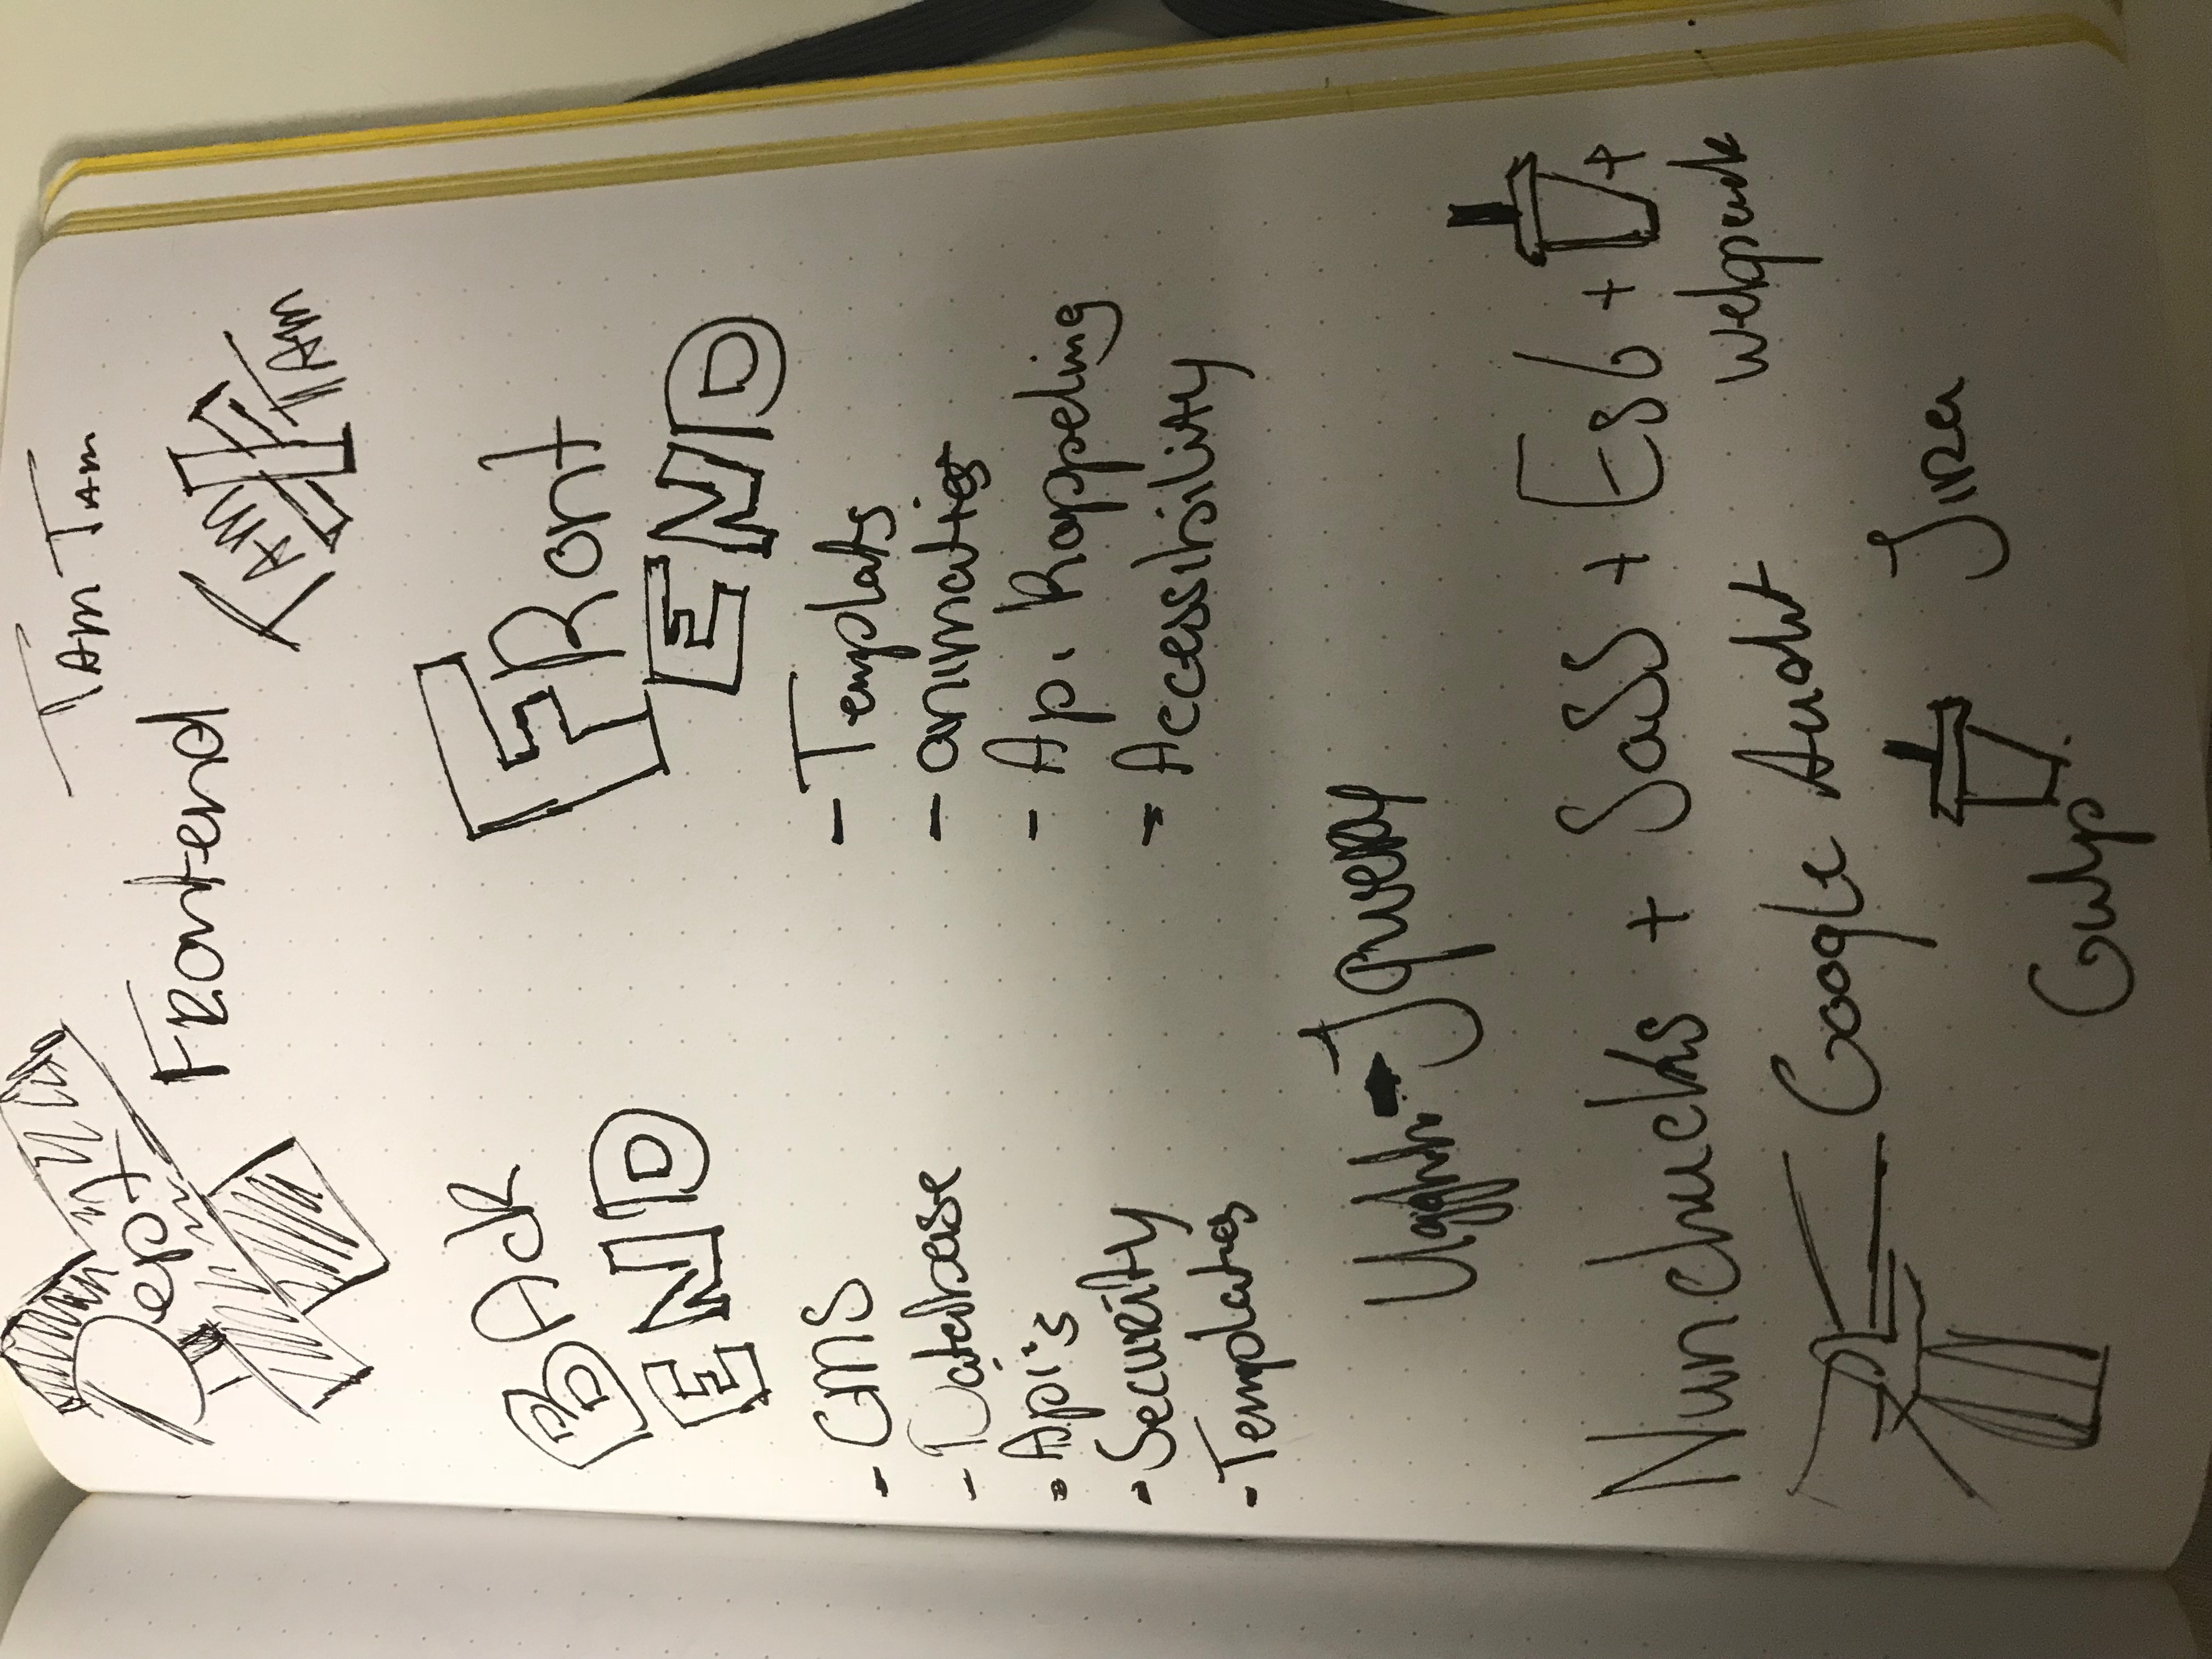 Dept
Tam Tam
Frontend
Tam
Tam
BAck
END
- CMS
- Database
- Api's
- Security
- Templates
FRont
END
- Templats
- animaties
- Api Koppeling
- Accessibility
Ugghh JQuery
Nunchucks + SaSS + Es6 + +
Webpack
Google Audit
Jira
Gulp